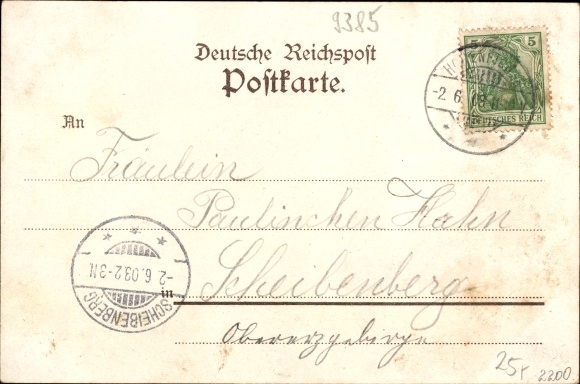 9385
Deutsche Reichspost
Postkarte.
5 5
-2.6.
DEUTSCHES REICH
An
Fräulein
Paulinchen Hahn
Scheibenberg
in
Obererzgebirge
-2.6.03.2-3N.
SCHEIBENBERG
25,-
2200